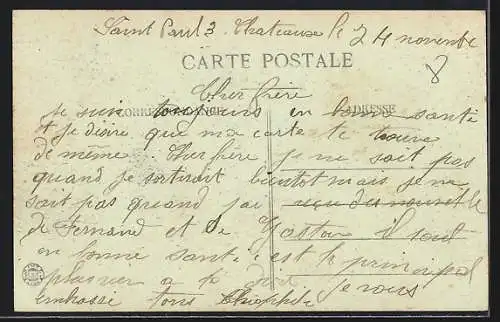 Saint Paul 3 Chateaux le 24 novembre
CARTE POSTALE
Cher frère
CORRESPONDANCE ADRESSE
je suis toujours en bonne santé
et je désire que ma carte te trouve
de même. Cher frère je ne sait pas
quand je sortirait bientot mais je ne
sait pas quand j'ai reçu des nouvelle
de Fernand et de Gaston il sont
en bonne santé c'est le principal
plus rien a te dire je vous
embrasse tous